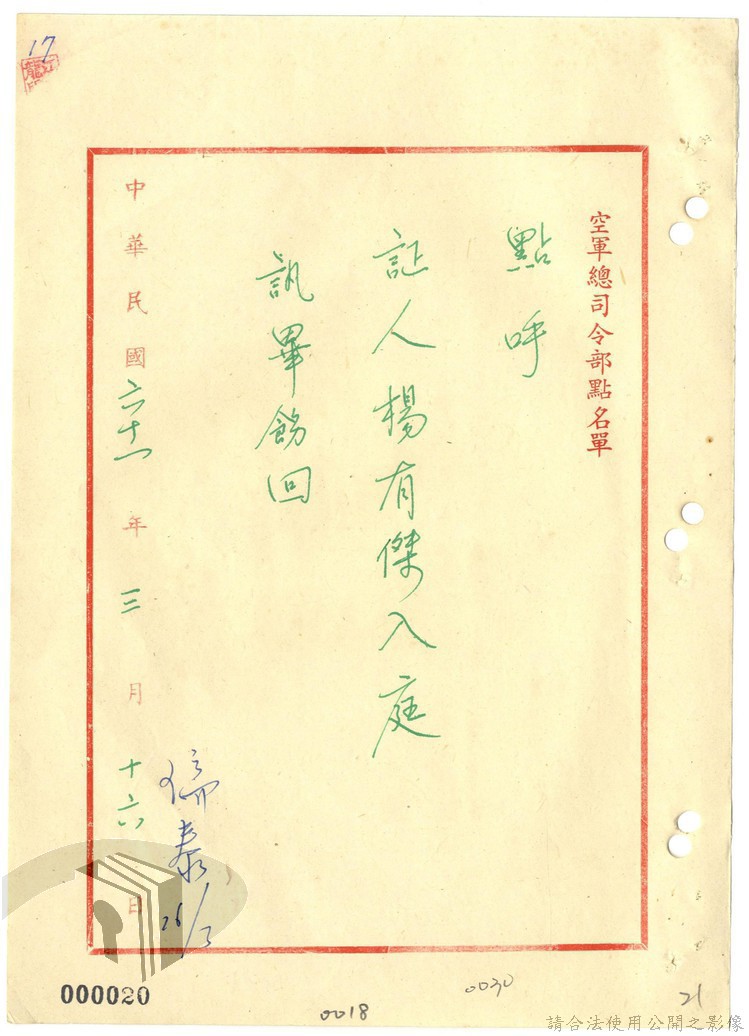 空軍總司令部點名單
點呼
証人楊有傑入庭
訊畢飭回
中華民國六十一年三月十六日
泰
17
000020
0018
0030
21
請合法使用公開之影像